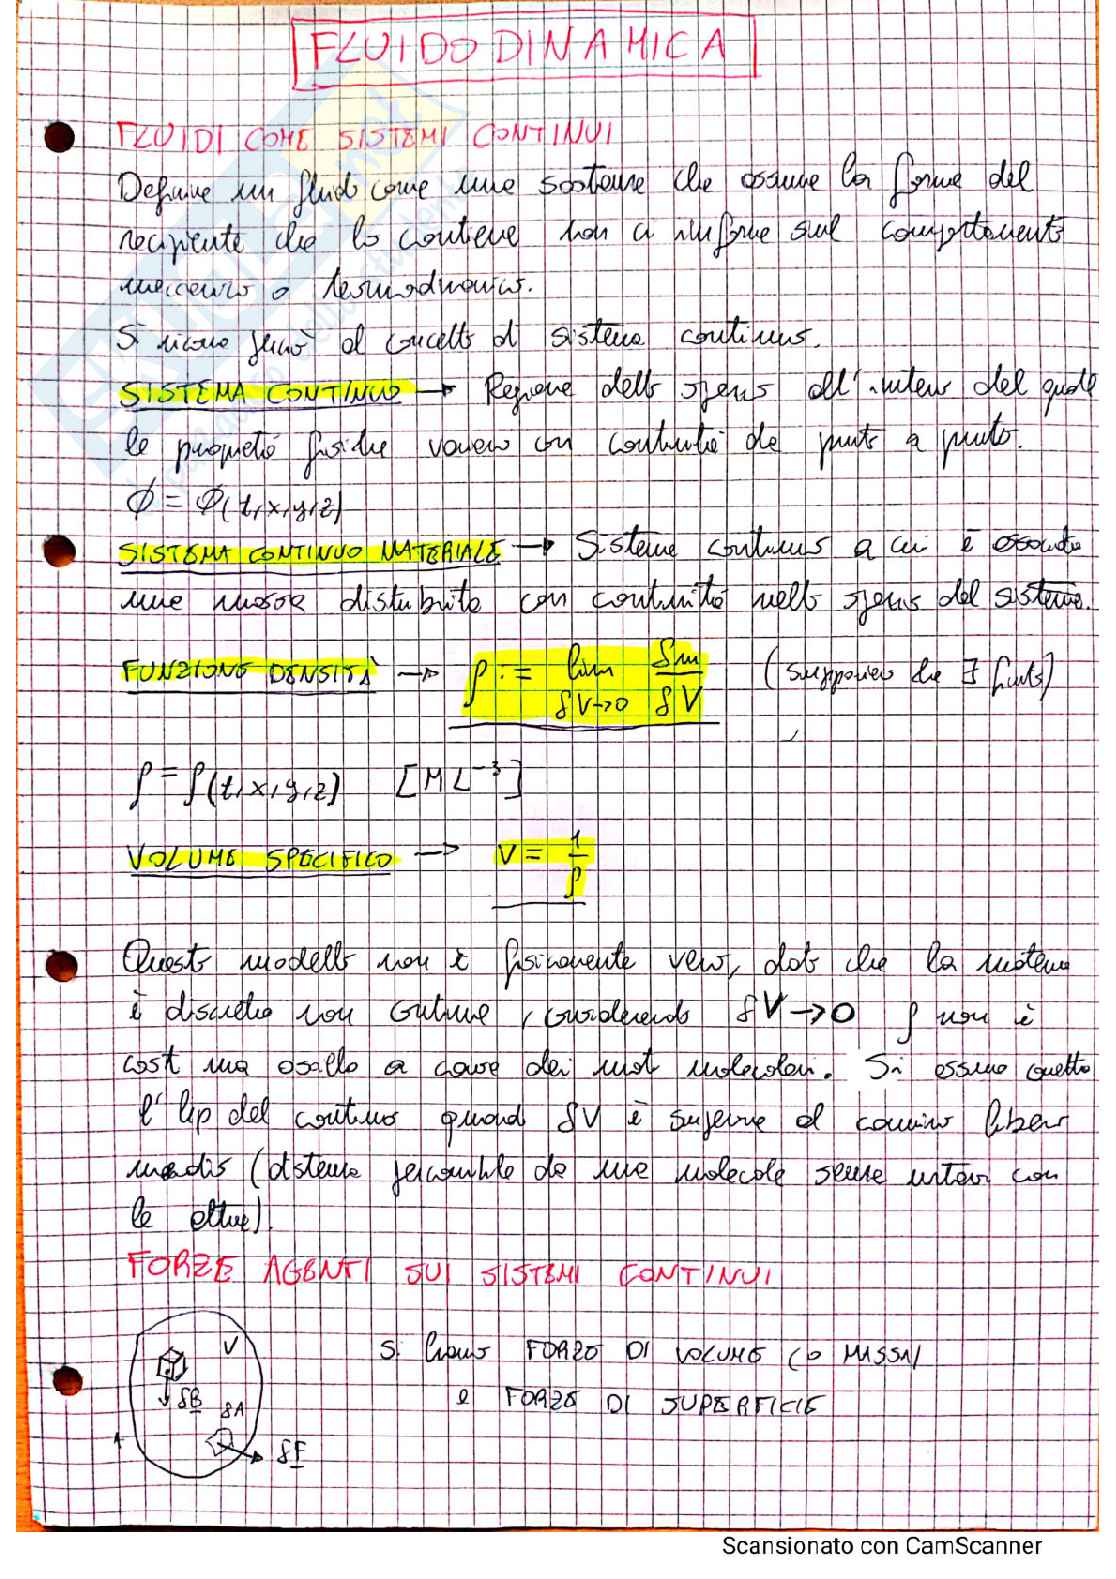 FLUIDODINAMICA
FLUIDI COME SISTEMI CONTINUI
Definire un fluido come una sostanza che assume la forma del
recipiente che lo contiene non ci informa sul comportamento
meccanico o termodinamico.
Si ricorre però al concetto di sistema continuo.
SISTEMA CONTINUO → Regione dello spazio all'interno del quale
le proprietà fisiche variano con continuità da punto a punto.
ϕ = ϕ(t,x,y,z)
SISTEMA CONTINUO MATERIALE → Sistema continuo a cui è associata
una massa distribuita con continuità nello spazio del sistema.
FUNZIONE DENSITÀ → ρ := lim δV→0 δm/δV (supponiamo che ∃ finito)
ρ = ρ(t,x,y,z) [ML⁻³]
VOLUME SPECIFICO → v = 1/ρ
Questo modello non è fisicamente vero, dato che la materia
è discreta non continua, considerando δV→0 ρ non è
cost ma oscilla a causa dei moti molecolari. Si assume corretta
l'ip del continuo quando δV è superiore al cammino libero
medio (distanza percorribile da una molecola senza urtarsi con
le altre).
FORZE AGENTI SUI SISTEMI CONTINUI
V
δB
δA
δF
Si hanno FORZE DI VOLUME (O MASSA)
e FORZE DI SUPERFICIE
Scansionato con CamScanner